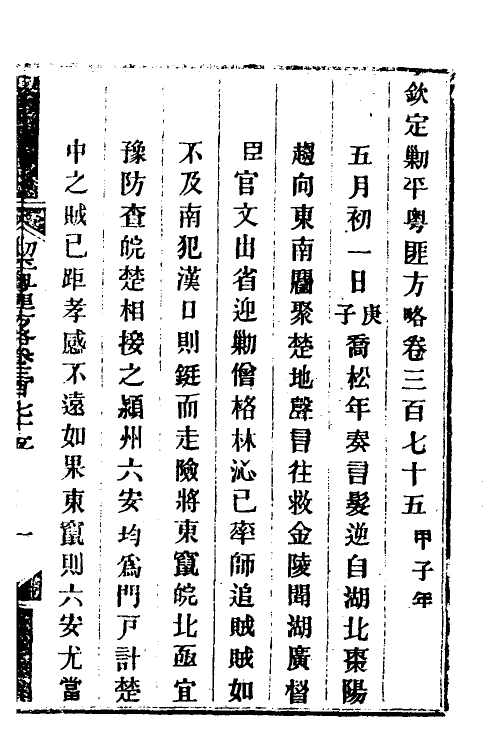 欽定勦平粵匪方略卷三百七十五 甲子年
五月初一日庚子喬松年奏言髮逆自湖北棗陽
趨向東南屬聚楚地聲言往救金陵聞湖廣督
臣官文出省迎勦僧格林沁已率師追賊賊如
不及南犯漢口則鋌而走險將東竄皖北亟宜
豫防查皖楚相接之潁州六安均爲門戶計楚
中之賊已距孝感不遠如果東竄則六安尤當
平粵匪方略卷三百七十五
一